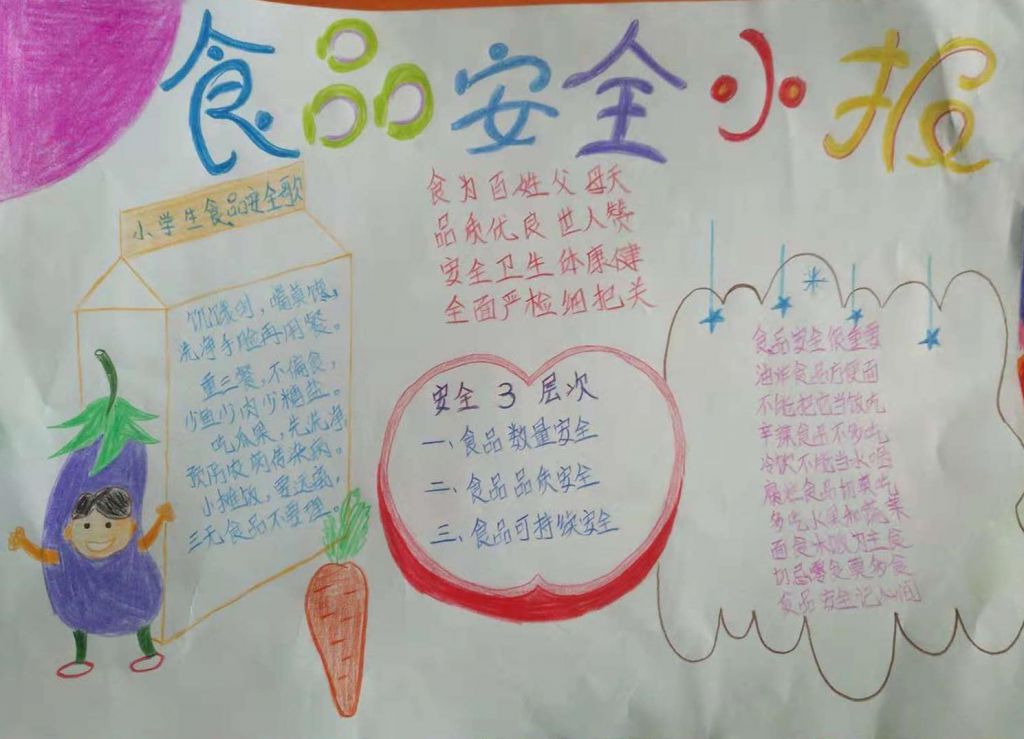 食品安全小报
小学生食品安全歌
饥饿到,嘴莫馋,
洗净手脸再用餐。
重三餐,不偏食,
少鱼少肉少糖盐。
吃瓜果,先洗净
预防收肉传染病。
小摊饭,要远离,
三无食品不要理。
食为百姓父母天
品质优良世人赞
安全卫生体康健
全面严检细把关
安全3层次
一、食品数量安全
二、食品品质安全
三、食品可持续安全
食品安全很重要
油炸食品方便面
不能把它当饭吃
辛辣食品不多吃
冷饮不能当水喝
腐烂食品切莫吃
多吃水果和蔬菜
面食米饭为主食
切忌零食莫多食
食品安全记心间